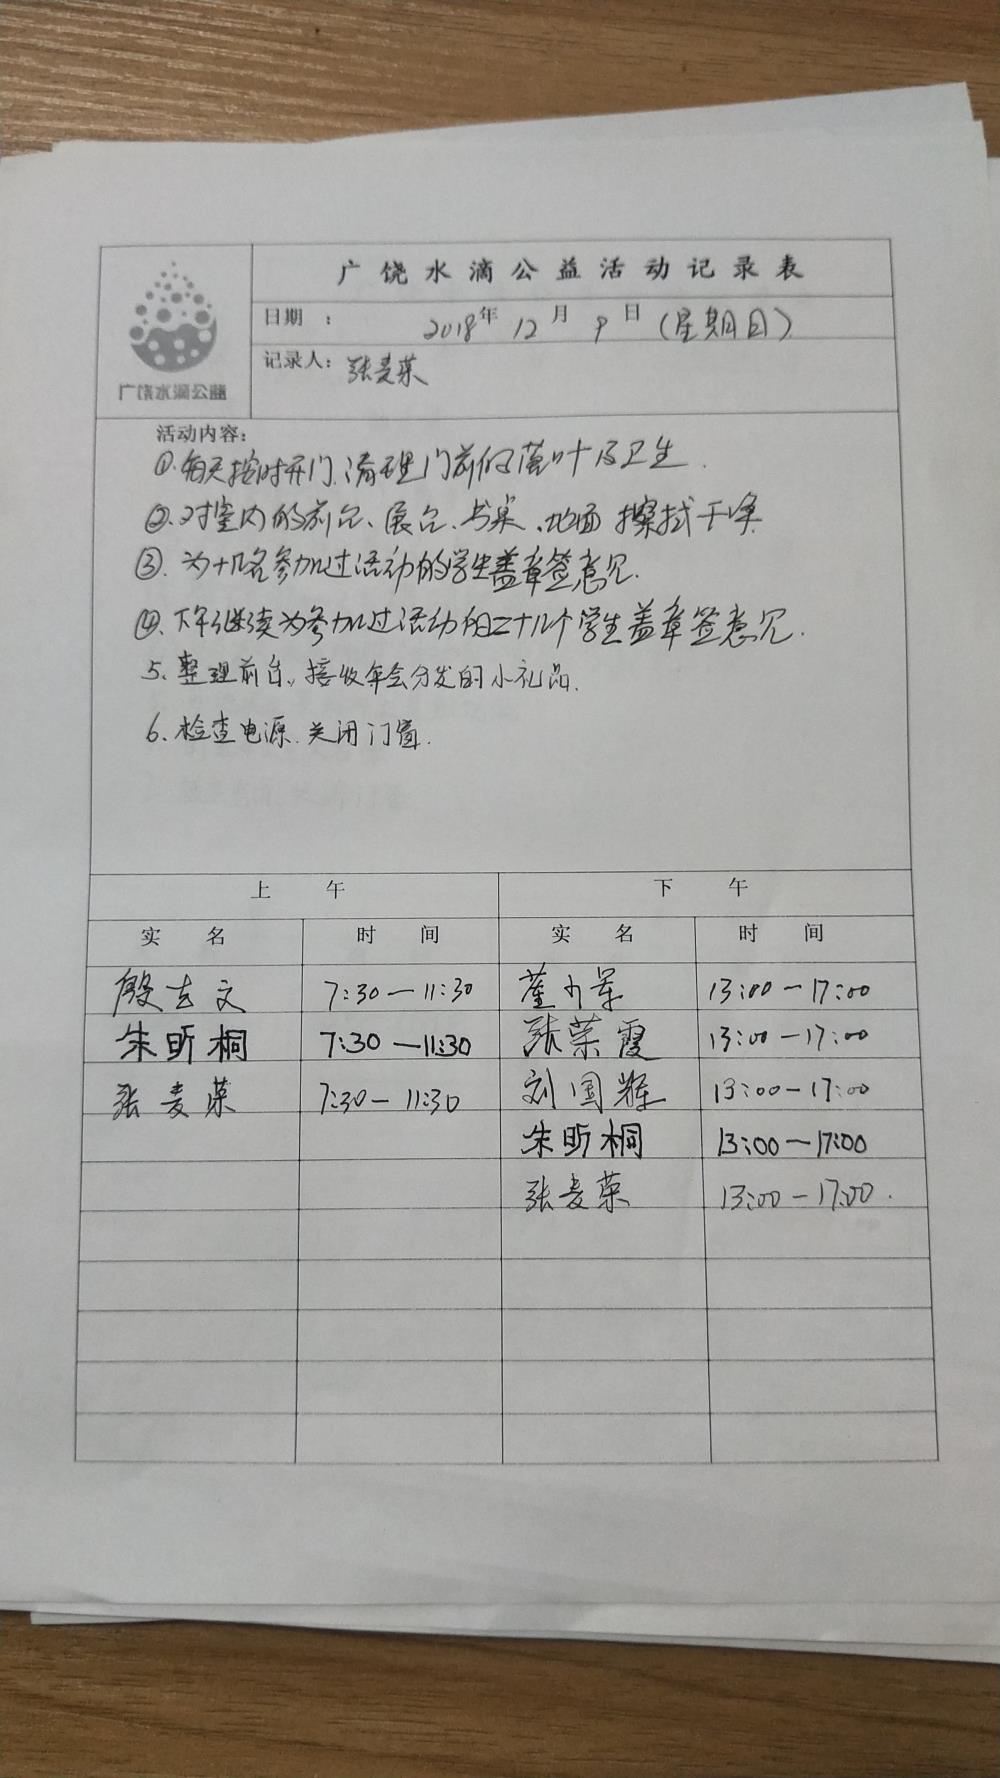 广饶水滴公益活动记录表
广饶水滴公益
日期 : 2018年 12月 9日 (星期日)
记录人: 张麦荣
活动内容:
①.每天按时开门.清理门前的落叶及卫生.
②.对室内的前台、展台、书桌、地面 擦拭干净
③.为十几名参加过活动的学生盖章签意见.
④.下午继续为参加过活动的二十几个学生盖章签意见.
5、整理前台、接收年会分发的小礼品.
6、检查电源.关闭门窗.
上 午 下 午
实 名 时 间 实 名 时 间
殷志文 7:30—11:30 董 军 13:00—17:00
朱昕桐 7:30—11:30 张荣霞 13:00—17:00
张麦荣 7:30—11:30 刘国辉 13:00—17:00
朱昕桐 13:00—17:00
张麦荣 13:00—17:00.